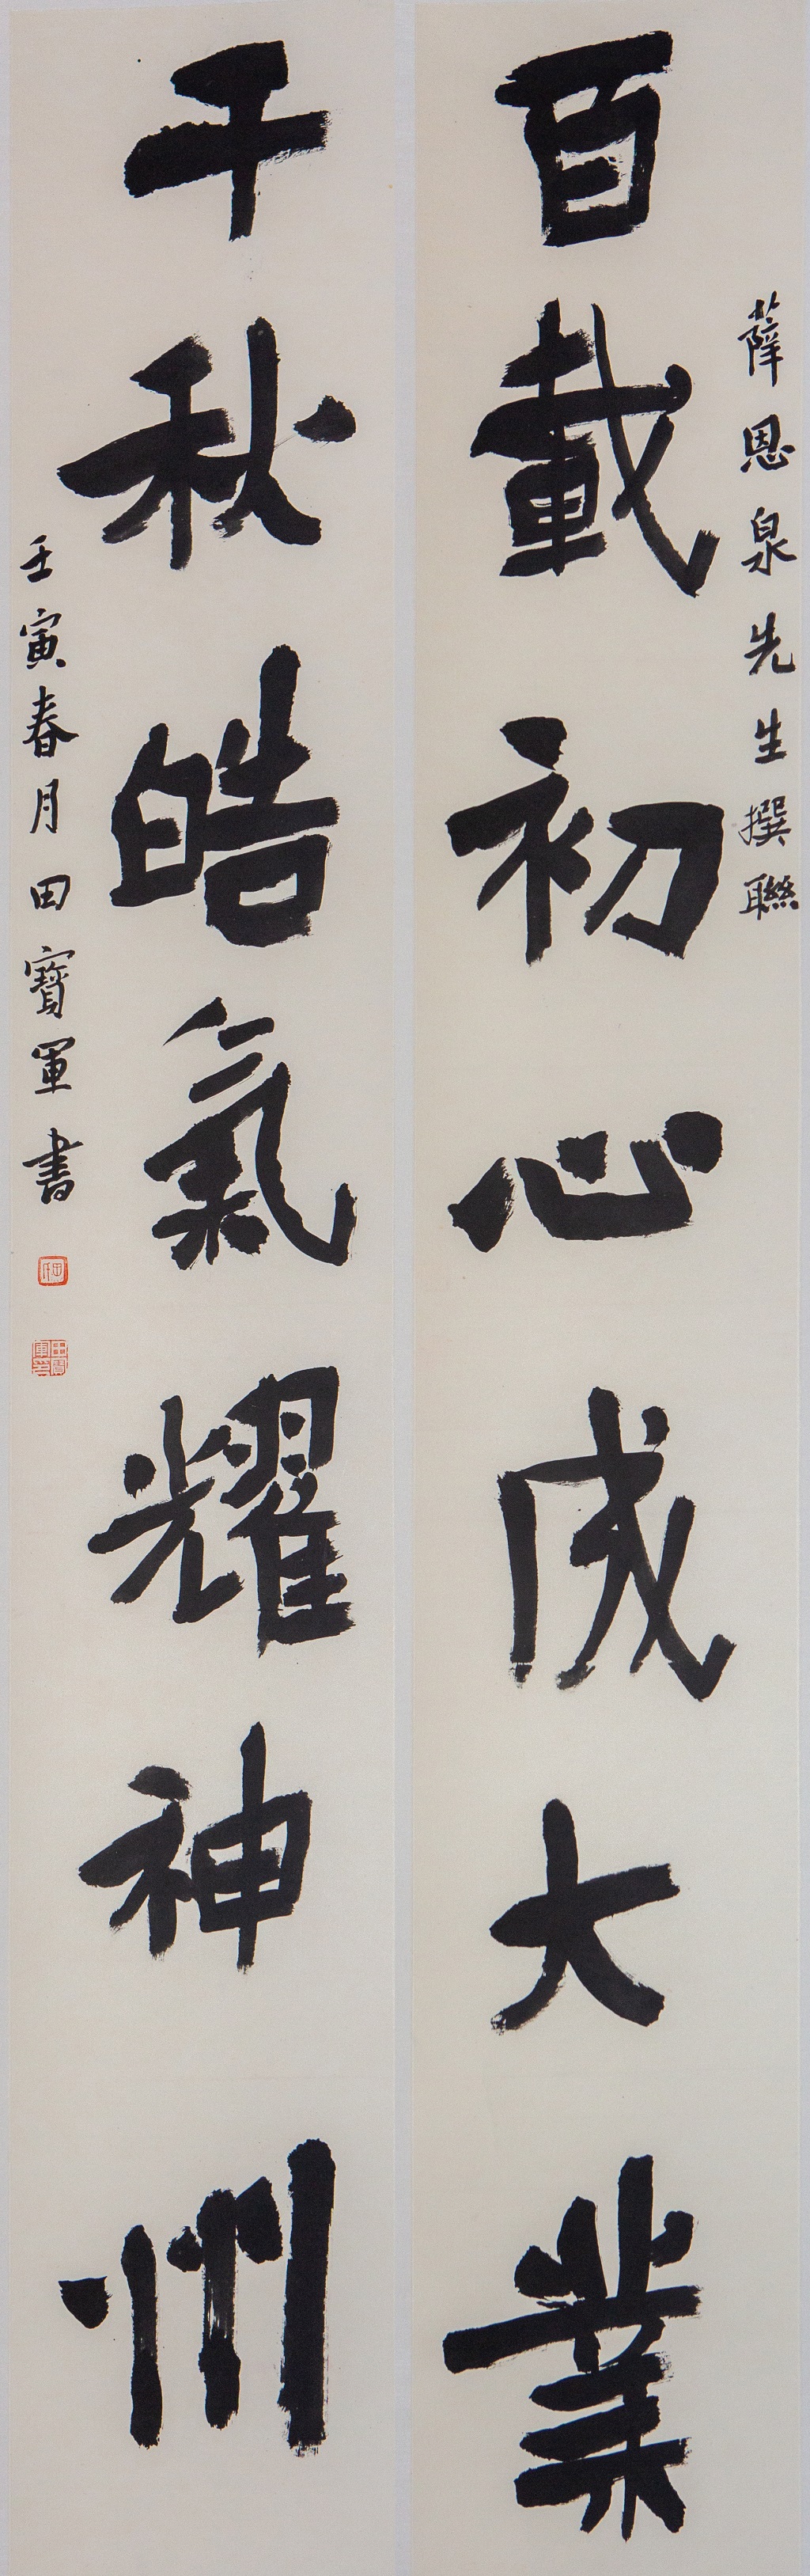 薛恩泉先生撰聯
百載初心成大業
千秋皓氣耀神州
壬寅春月田寶軍書